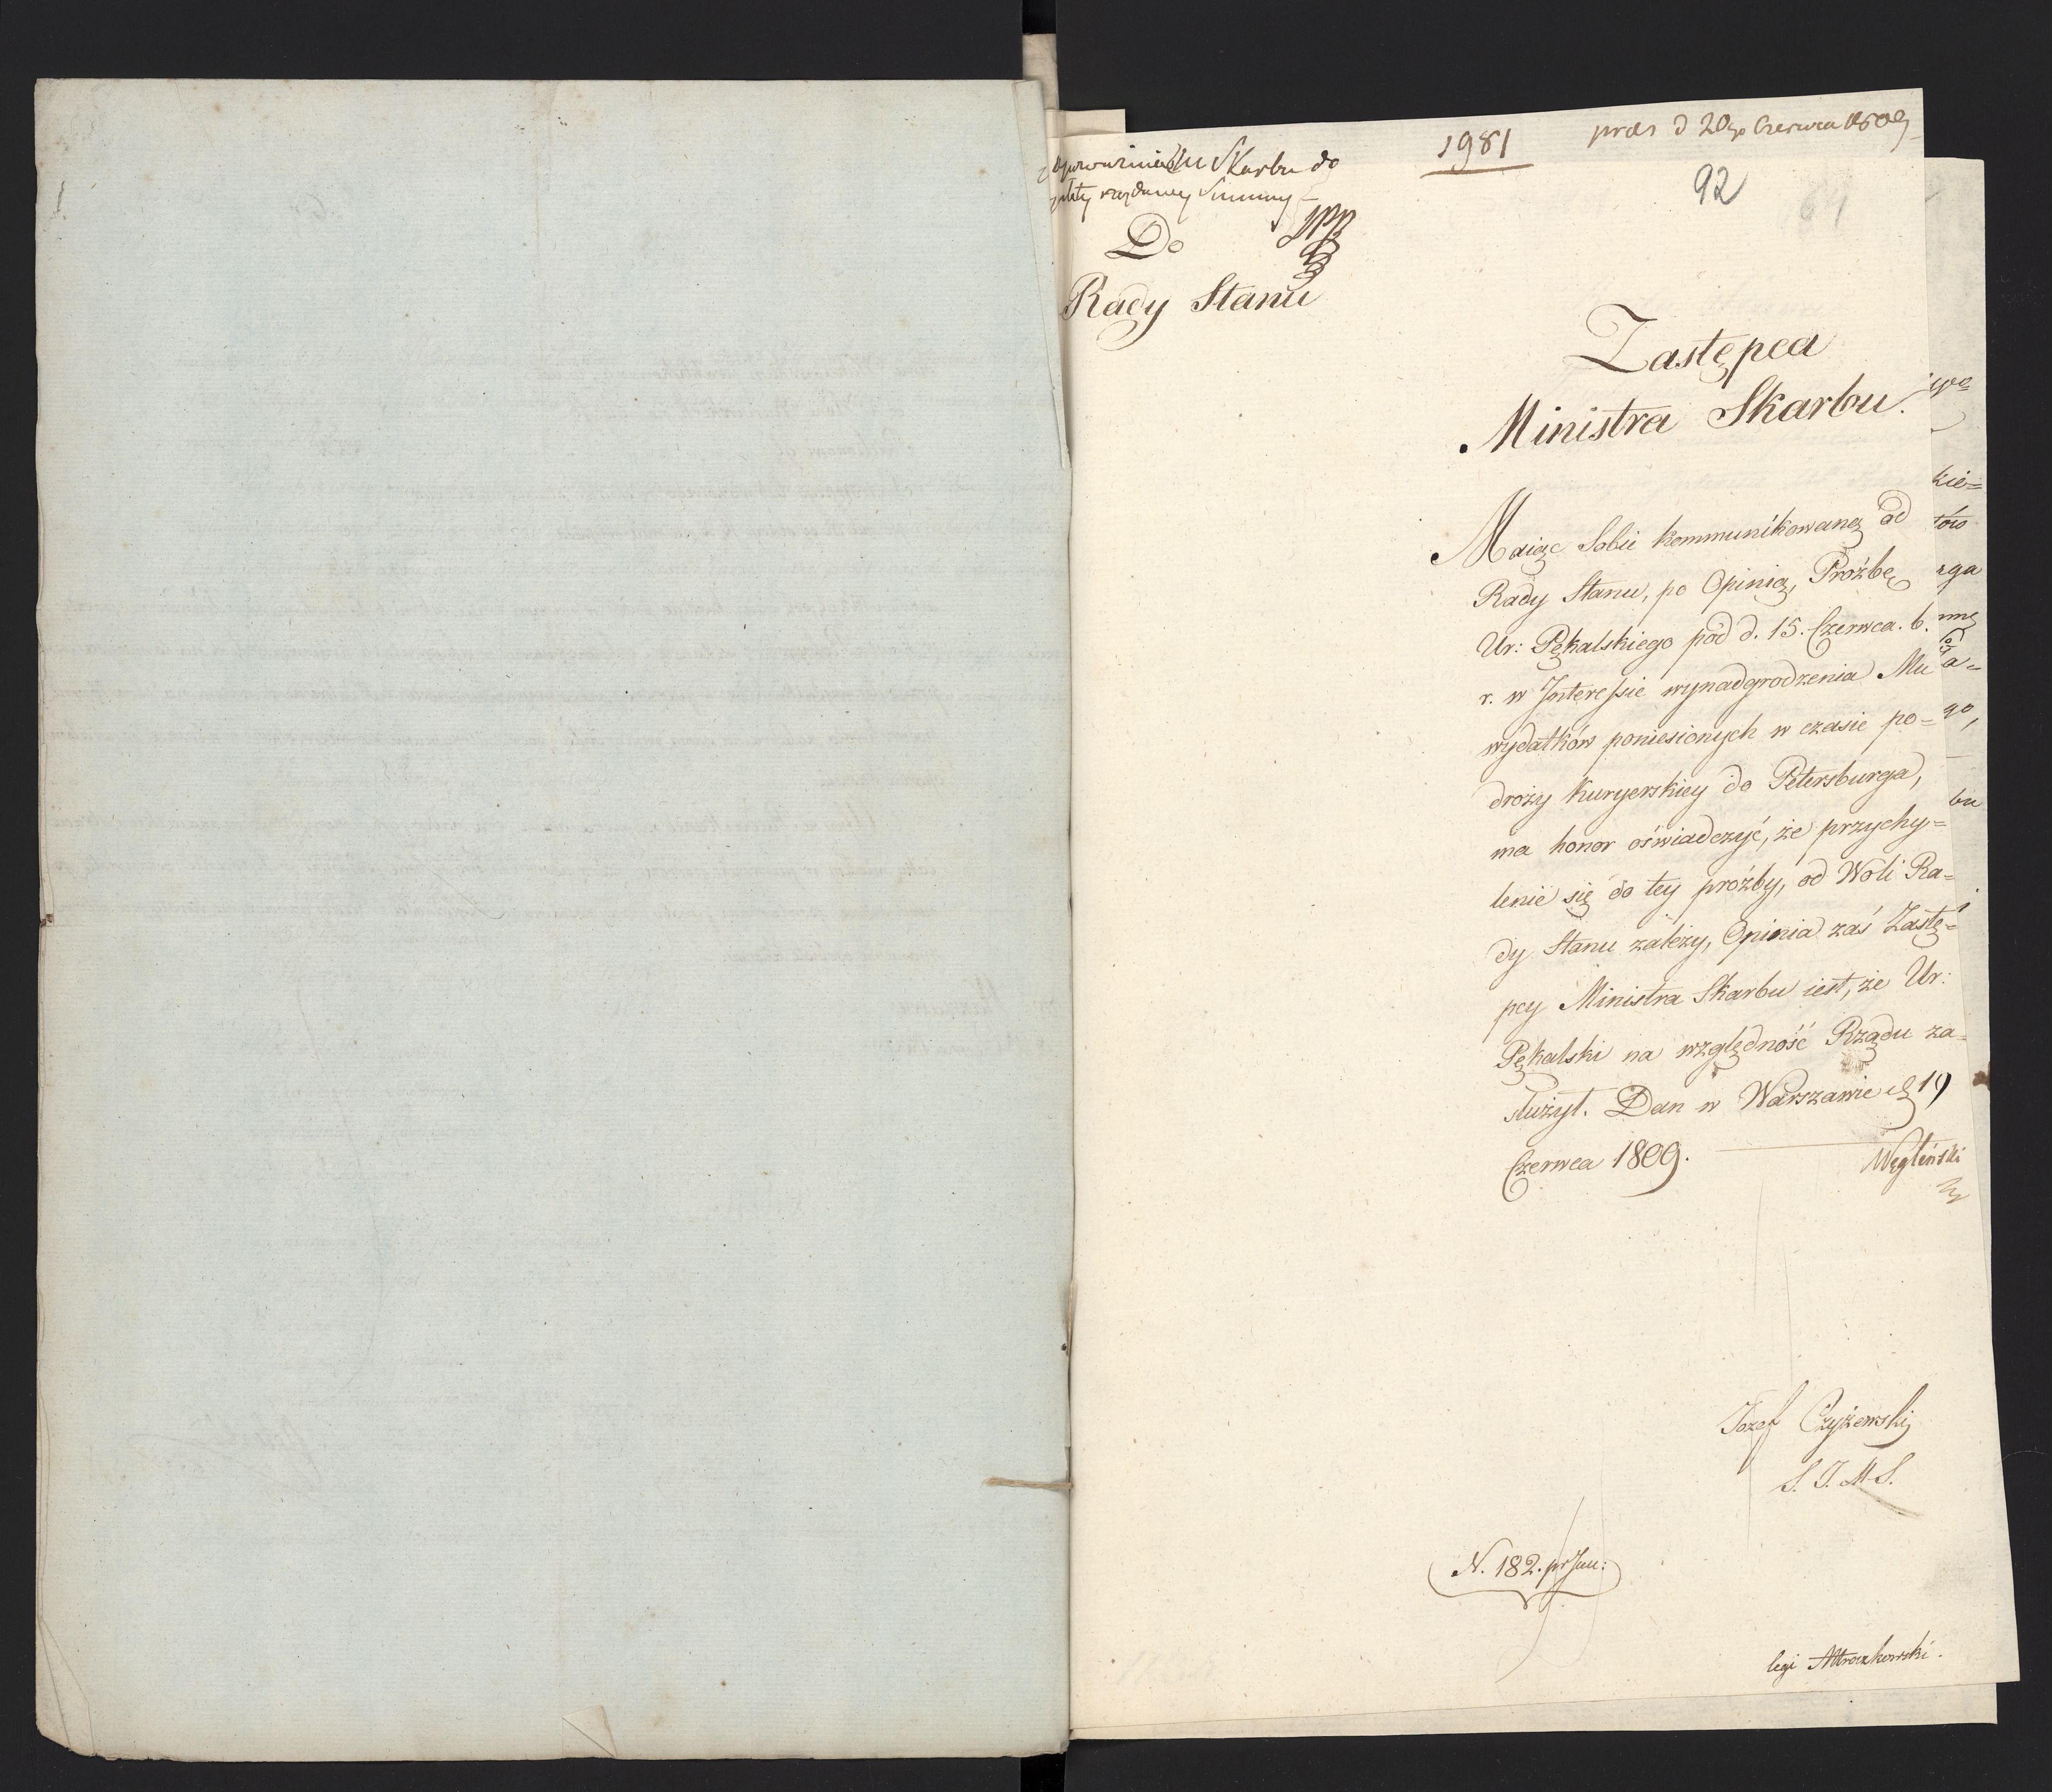 1981
pres d 20go Czerwca 1809
92
64
Skarbu do
Summy
Do
Rady Stanu
Zastępca
Ministra Skarbu.
Maiąc Sobie kommunikowaną od
Rady Stanu, po Opinią, Proźbę
Ur: Pękalskiego pod d. 15. Czerwca. b.
r. w Interessie wynadgrodzenia Mu
wydatków poniesionych w czasie po=
droży Kuryerskiey do Petersburga,
ma honor oświadczyć, że przychy=
lenie się do tey proźby, od Woli Ra=
dy Stanu zależy, Opinia zaś Zastę=
pcy Ministra Skarbu iest, że Ur:
Pękalski na względność Rządu za=
służył. Dan w Warszawie d 19
Czerwca 1809.
Węgleński
Jozef Czyżewski
S. J. M. S.
N. 182. pr Jau:
legi Mroczkowski.